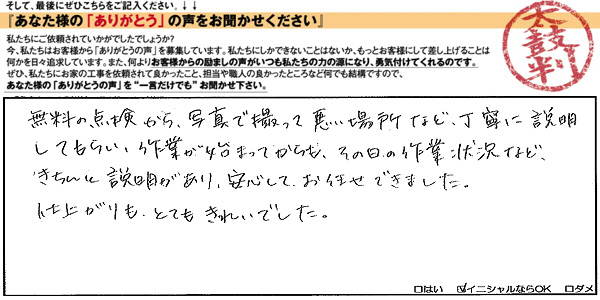 そして、最後にぜひこちらをご記入ください。↓↓
『あなた様の「ありがとう」の声をお聞かせください』
私たちにご依頼されていかがでしたでしょうか?
今、私たちはお客様から「ありがとうの声」を募集しています。私たちにしかできないことはないか、もっとお客様にして差し上げることは
何かを日々追求しています。また、何よりお客様からの励ましの声がいつも私たちの力の源になり、勇気付けてくれるのです。
ぜひ、私たちにお家の工事を依頼されて良かったこと、担当や職人の良かったところなど何でも結構ですので、
あなた様の「ありがとうの声」を“一言だけでも”お聞かせ下さい。
太鼓判
無料の点検から、写真で撮って悪い場所など、丁寧に説明
してもらい、作業が始まってからも、その日の作業状況など、
きちんと説明があり、安心して、お任せできました。
仕上がりも、とてもきれいでした。
□はい ☑イニシャルならOK □ダメ